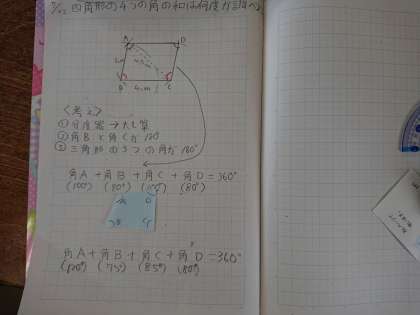 四角形の4つの角の和は何度か調べ
A D
B C
4cm
<考え>
①分度器→たし算
②角Bと角Cが120
③三角形の3つの角が180°
角A+角B+角C+角D=360°
(100°) (80°) (100°) (80°)
A D
B C
角A+角B+角C+角D=360°
(120°) (75°) (85°) (80°)